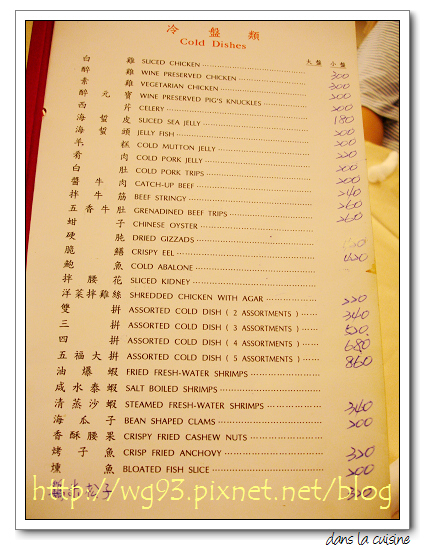 冷盤類
Cold Dishes
大盤 小盤
白雞 SLICED CHICKEN
醉雞 WINE PRESERVED CHICKEN 300
素雞 VEGETARIAN CHICKEN 300
醉元寶 WINE PRESERVED PIG'S KNUCKLES 200
西片 CELERY 200
海蜇皮 SLICED SEA JELLY 180
海蜇頭 JELLY FISH 200
羊糕 COLD MUTTON JELLY 200
肴肉 COLD PORK JELLY 220
白肚 COLD PORK TRIPS 200
醬牛肉 CATCH-UP BEEF 200
拌牛筋 BEEF STRINGY 240
五香牛肚 GRENADINED BEEF TRIPS 260
蚶子 CHINESE OYSTER 260
硬肫 DRIED GIZZADS
脆鱔 CRISPY EEL
鮑魚 COLD ABALONE
拌腰花 SLICED KIDNEY
洋菜拌雞絲 SHREDDED CHICKEN WITH AGAR 220
雙拼 ASSORTED COLD DISH ( 2 ASSORTMENTS ) 340
三拼 ASSORTED COLD DISH ( 3 ASSORTMENTS ) 520
四拼 ASSORTED COLD DISH ( 4 ASSORTMENTS ) 680
五福大拼 ASSORTED COLD DISH ( 5 ASSORTMENTS ) 860
油爆蝦 FRIED FRESH-WATER SHRIMPS
咸水泰蝦 SALT BOILED SHRIMPS
清蒸沙蝦 STEAMED FRESH-WATER SHRIMPS 340
海瓜子 BEAN SHAPED CLAMS 200
香酥腰果 CRISPY FRIED CASHEW NUTS
烤子魚 CRISP FRIED ANCHOVY 320
燻魚 BLOATED FISH SLICE 200
松子 320
http://wg93.pixnet.net/blog
dans la cuisine